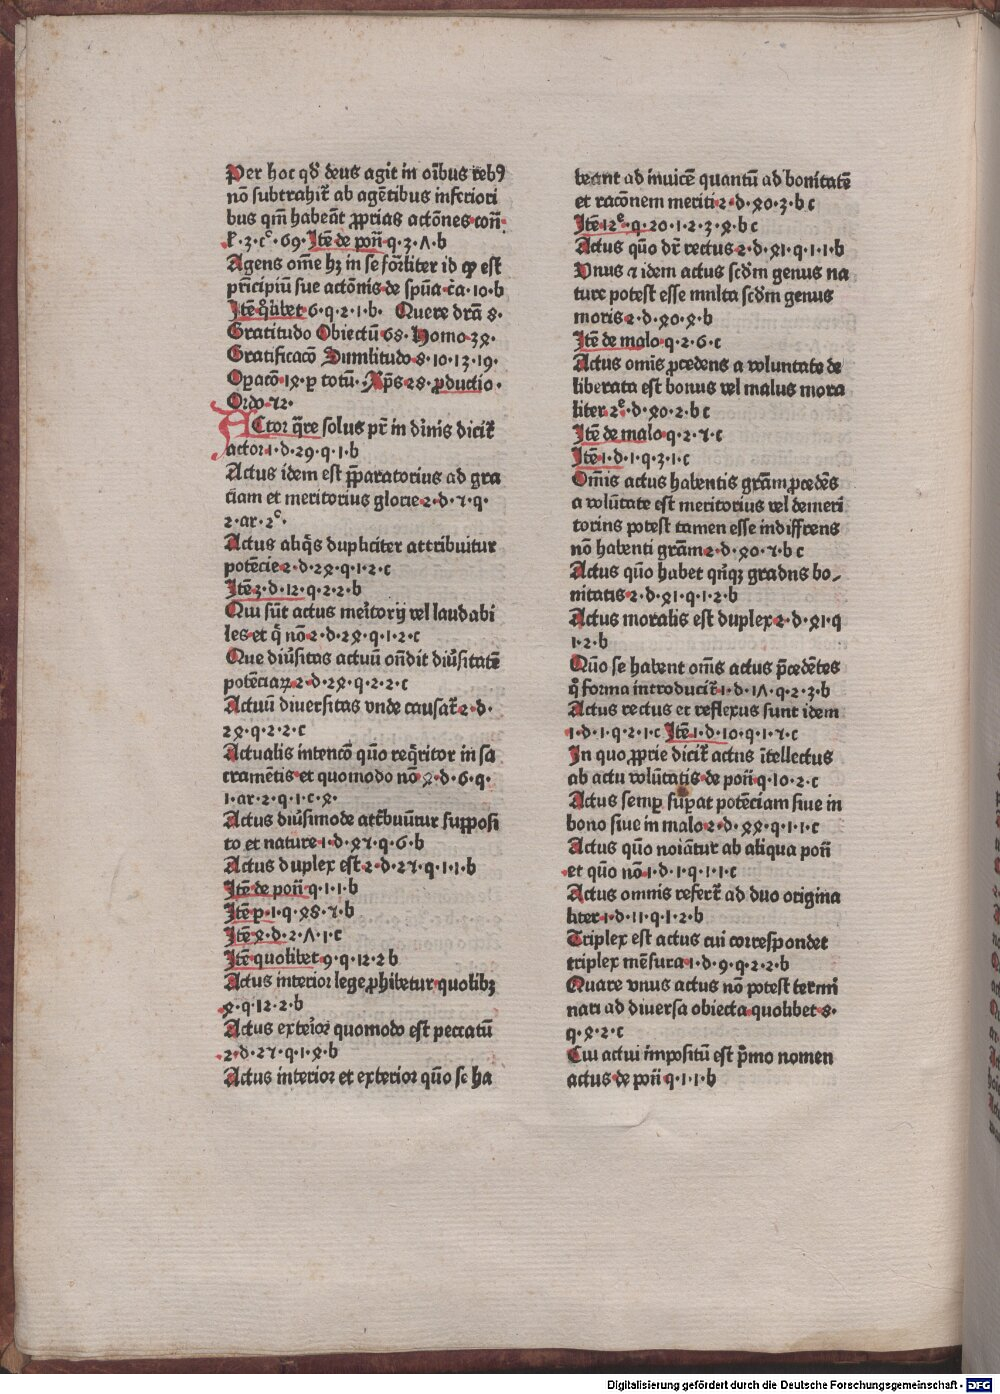 Per hoc qď deus agit in oībus rebꝰ
nō subtrahit̄ ab agētibus inferiori
bus qm̄ habeāt ꝓprias actōnes cōn̄·
ḡ·3·c°·69·Itē de pon̄ q·3·Λ·b
Agens om̄e hꝫ in se fōrliter id qͥ est
prīcipiū sue actōnis de spūa cꝛ̄a·10·b
Itē qͦlibet 6·q·2·1·b· Quere drā 8·
Gratitudo Obiectū 68· Homo 3ꝝ·
Gratificacō Simílitudo 8·10·13·19·
Opacō 1ꝝ·ꝑ totū· Xp̄s 28·ꝓductio·
Ordo·72·
ACtor qͣre solus pr̄ in dīnis dicit̄
actor·1·d·29·q·1·b
Actus idem est p̄paratorius ad gra
ciam et meritorius glorie 2·d·7·q·
2·ar·2ᶜ·
Actus aliqͥs dupliciter attribuitur
potēcie 2·d·2ꝝ·q·1·2·c
Itē 3·d·12·q·2·2·b
Qui sūt actus meritorij vel laudabi
les et qͥ nō 2·d·2ꝝ·q·1·2·c
Que diūsitas actuū on̄dit diūsitatē
potēciaꝝ 2·d·2ꝝ·q·2·2·c
Actuū diversitas vnde causat̄ 2·d·
2ꝝ·q·2·2·c
Actualis intencō quō reqͥritor in sa
cramētis et quomodo nō ꝝ·d·6·q·
1·ar·2·q·1·c·ꝝ·
Actus diūsimode att̄buūtur supposi
to et nature 1·d·ꝝ7·q·6·b
Actus duplex est 2·d·27·q·1·1·b
Itē de pon̄ q·1·1·b
Itē p̄·1·q·ꝝ8·7·b
Itē ꝝ·d·2·Λ·1·c
Itē quolibet 9·q·12·2 b
Actus interior lege ꝓhibetur quolibꝫ
ꝝ·q·12·2·b
Actus exteīor quomodo est peccatū
2·d·27·q·1·ꝝ·b
Actus interior et exterior quō se ha
beant ad inuicē quantū ad bonitatē
et racōnem meriti 2·d·ꝝ0·3·b c
Itē 12ᵉ·q·20·1·2·3·ꝝ·b c
Actus quō dr̄ rectus 2·d·ꝝ1·q·1·1·b
Vnus ⁊ idem actus scďm genus na
ture potest esse mnlta scďm genus
moris 2·d·ꝝ0·ꝝ·b
Itē de malo q·2·6·c
Actus omīs ꝓcedens a voluntate de
liberata est bonus vel malus mora
liter 2ᵉ·d·ꝝ0·2·b c
Itē de malo q·2·7·c
Itē 1·d·1·q·3·1·c
Omīs actus habentis grām ꝓcedēs
a volūtate est meritorius vel demeri
torins potest tamen esse indiffrens
nō habenti grām 2·d·ꝝ0·7·b c
Actus quō habet qn̄qꝫ gradns bo⸗
nitatis 2·d·ꝝ1·q·1·2·b
Actus moralis est duplex 2·d·ꝝ1·q
1·2·b
Quō se habent omīs actus p̄cedētes
qͦ forma introducit̄ 1·d·1Λ·q·2·3·b
Actus rectus et reflexus sunt idem
1·d·1·q·2·1·c Itē 1·d·10·q·1·7·c
In quo ꝓprie dicit̄ actus ītellectus
ab actu volūtatis de pon̄ q·10·2·c
Actus semꝑ suꝑat potēciam siue in
bono siue in malo 2·d·ꝝꝝ·q·1·1·c
Actus quō noīātur ab aliqua pon̄
et quō nō 1·d·1·q·1·1·c
Actus omnis refert̄ ad duo origina
liter 1·d·11·q·1·2·b
Triplex est actus cui correspondet
triplex mēsura 1·d·9·q·2·2·b
Quare vnus actus nō potest termī
nari ad diversa obiecta quolibet 8·
q·ꝝ·2·c
Cui actui impositū est pͥmo nomen
actus de pon̄ q·1·1·b
Digitalisierung gefördert durch die Deutsche Forschungsgemeinschaft - DFG